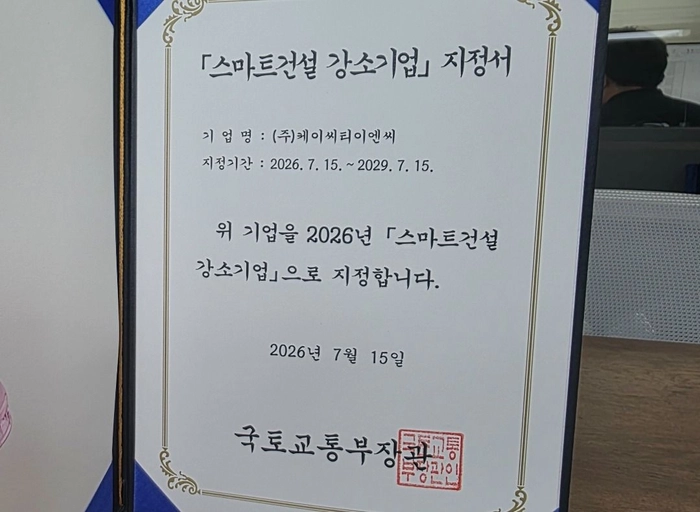 「스마트건설 강소기업」 지정서
기 업 명 : (주)케이씨티이엔씨
지정기간 : 2026. 7. 15. ~ 2029. 7. 15.
위 기업을 2026년 「스마트건설
강소기업」으로 지정합니다.
2026년 7월 15일
국토교통부장관
국토교통
부장관인